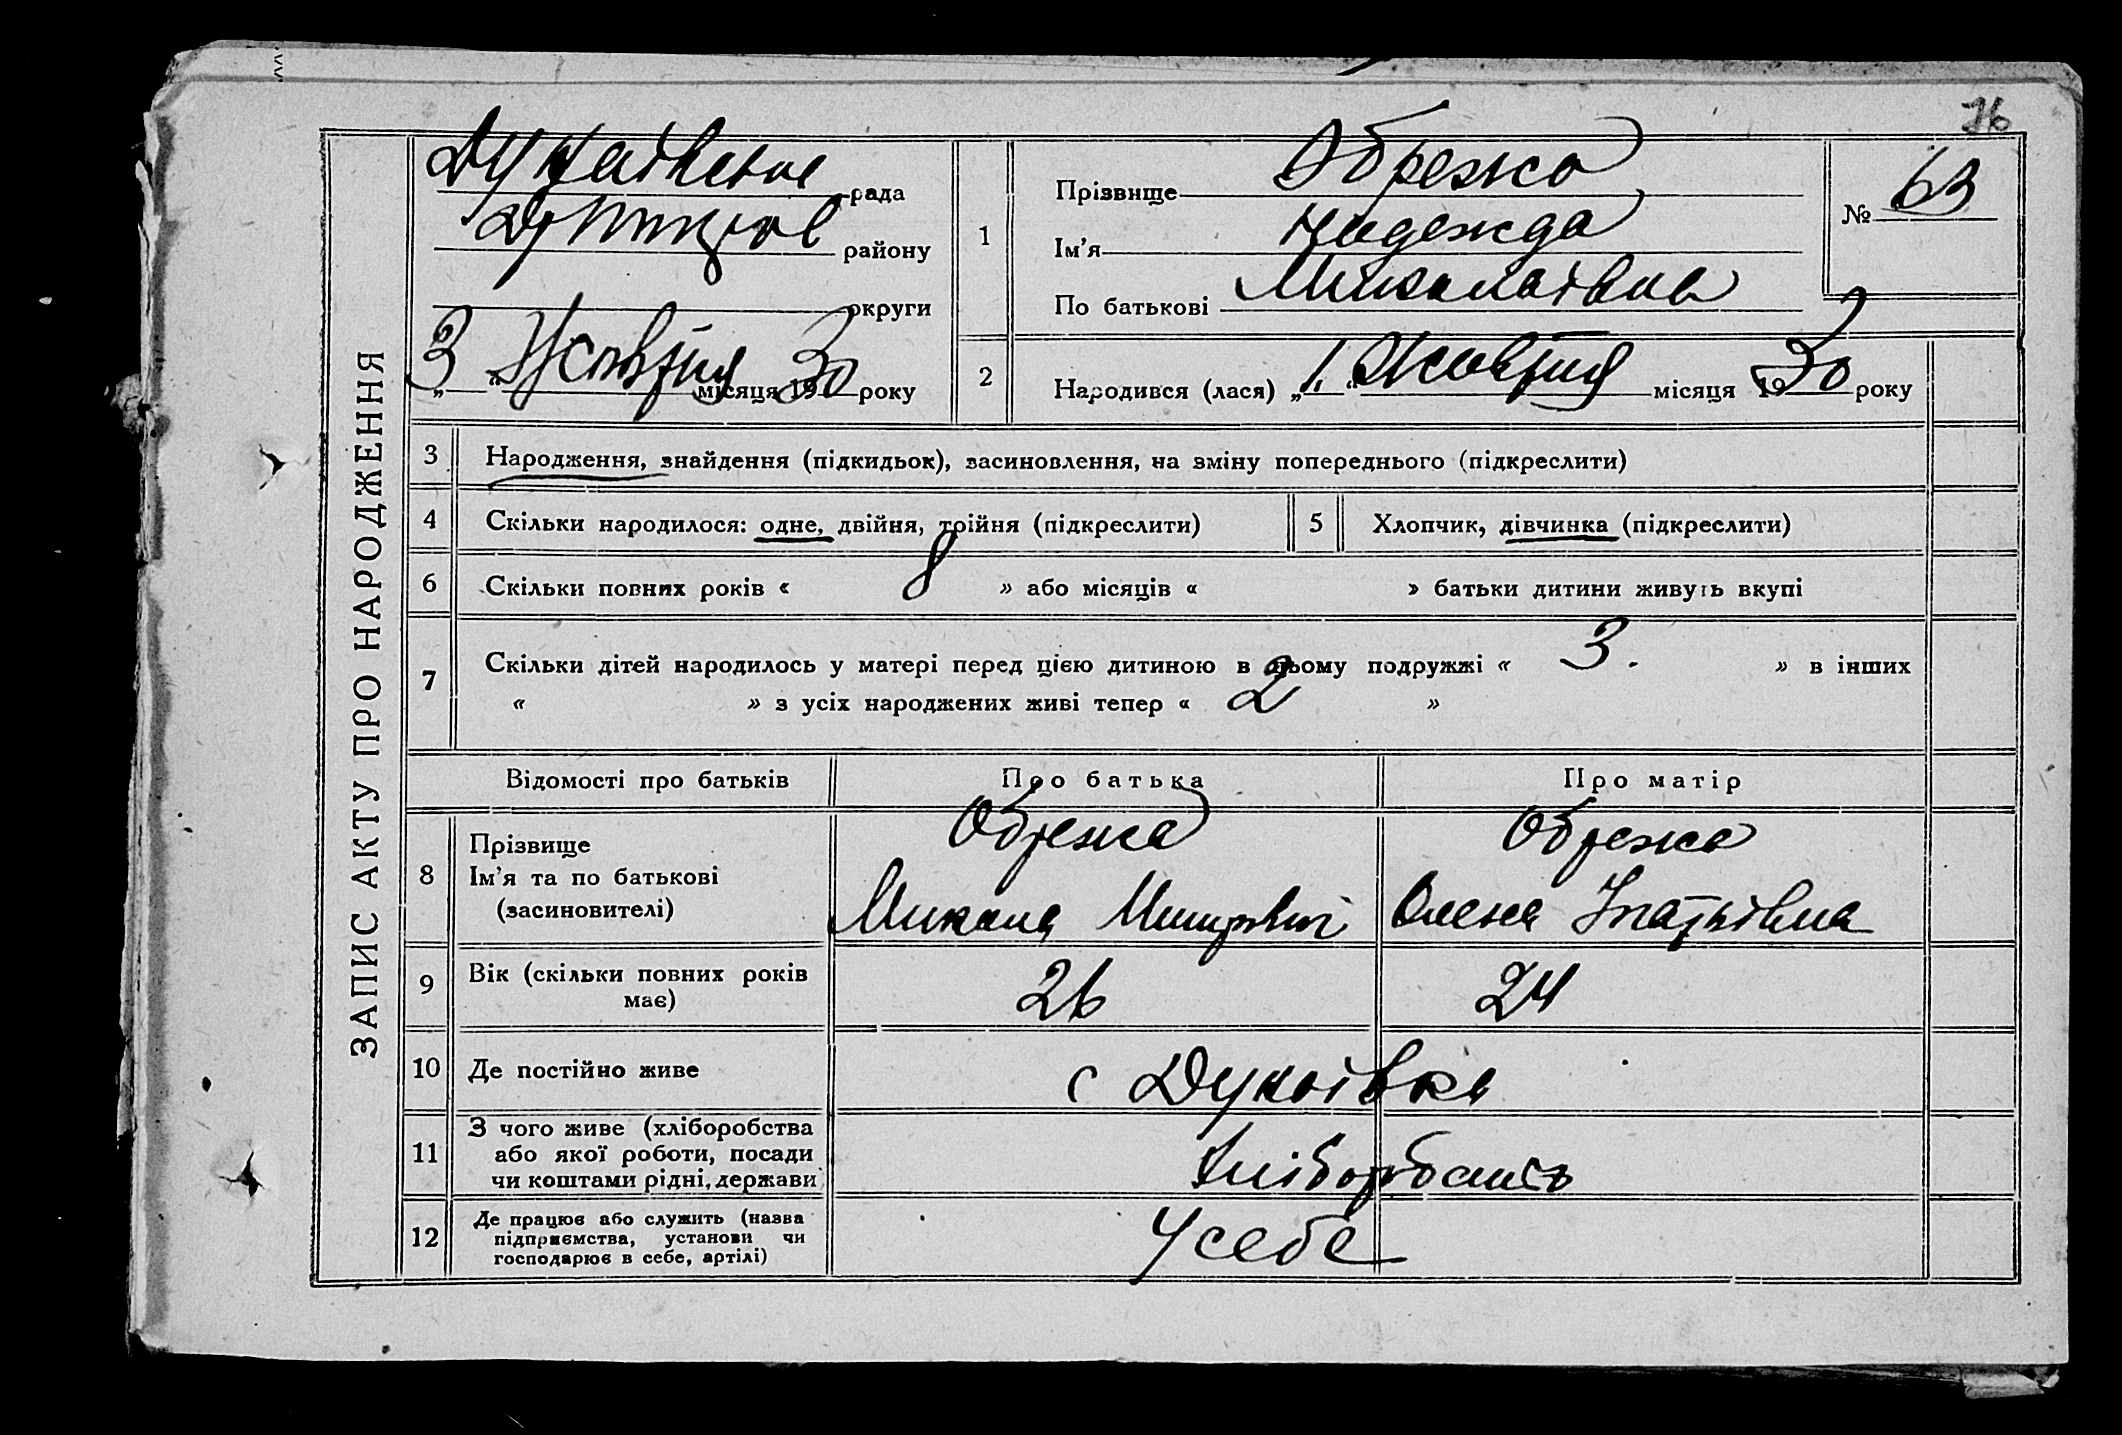 76
ЗАПИС АКТУ ПРО НАРОДЖЕННЯ
рада
району
округи
3 Жовтня місяця 1930 року
1
Прізвище Обрежа
Ім'я Надежда
По батькові Миколаївна
№ 63
2
Народився (лася) „1“ Жовтня місяця 1930 року
3 Народження, знайдення (підкидьок), засиновлення, на зміну попереднього (підкреслити)
4 Скільки народилося: одне, двійня, трійня (підкреслити)
5 Хлопчик, дівчинка (підкреслити)
6 Скільки повних років « 8 » або місяців « » батьки дитини живуть вкупі
7 Скільки дітей народилось у матері перед цією дитиною в цьому подружжі « 3. » в інших
« » з усіх народжених живі тепер « 2 »
Відомості про батьків Про батька Про матір
8 Прізвище
Ім'я та по батькові
(засиновителі)
Обрежа
Микола
Обрежа
Олена Гнатьівна
9 Вік (скільки повних років
має)
26 24
10 Де постійно живе с Дукоівка
11 З чого живе (хліборобства
або якої роботи, посади
чи коштами рідні, держави
12 Де працює або служить (назва
підприємства, установи чи
господарює в себе, артілі)
У себе